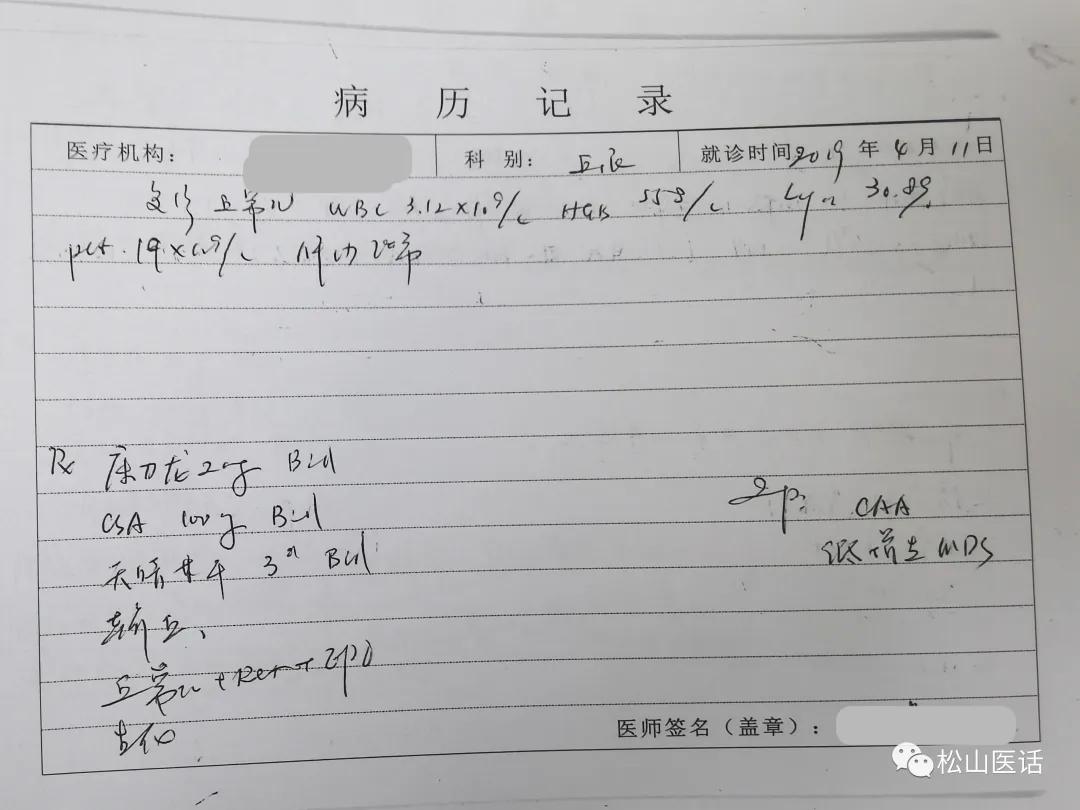 病历记录
医疗机构： 科别：血液 就诊时间2019年4月11日
复诊 血常规 WBC 3.12×10^9/L HGB 55g/L Ly% 30.8%
plt 19×10^9/L 肝功正常
Rx 康力龙 2mg Bid
CSA 100mg Bid
天晴甘平 3# Bid
输血、
血常规+Ret+EPO
生化
Imp: CAA
低增生MDS
医师签名（盖章）：
松山医话